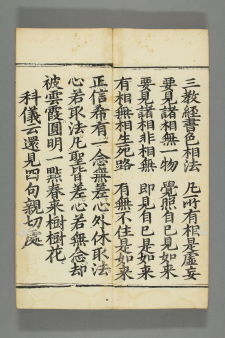 三教經書色相法 凡所有相是虛妄
要見諸相無一物 覺照自己見如來
要見諸相非相無 即見自己是如來
有相無相生死路 有無不住是如來
正信希有一念無差心外休取法
心若取法凡聖皆差心若無念却
被雲霞圓明一點春來樹樹花
科儀云還見四句親切處